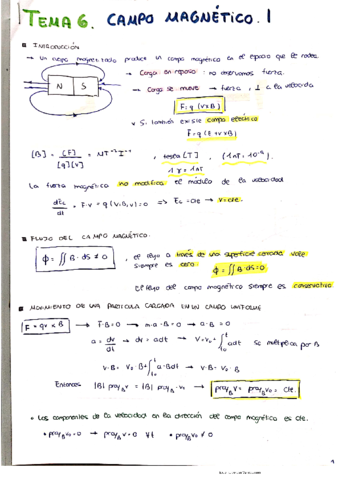 TEMA 6. CAMPO MAGNÉTICO. I
INTRODUCCIÓN
→ Un cuerpo magnetizado produce un campo magnético en el espacio que le rodea.
→ Carga en reposo: no observamos fuerza.
N S
→ Carga se mueve → fuerza ⊥ a la velocidad
F = q (v×B)
• Si también existe campo eléctrico
F = q (E+v×B)
[B] = [F]/[q][v] = NT⁻¹I⁻¹ , tesla [T]
La fuerza magnética no modifica el módulo de la velocidad
= F·v = q (v×B, v) = 0 ⇒ Ec = cte → v = cte.
FLUJO DEL CAMPO MAGNÉTICO.
ϕ = ∬ B·dS ≠ 0 , el flujo a través de una superficie cerrada vale
siempre es cero. ϕ = ∬ B·dS = 0
El flujo del campo magnético siempre es conservativo.
MOVIMIENTO DE UNA PARTÍCULA CARGADA EN UN CAMPO UNIFORME
F = qv × B → F·B = 0 → m·a·B = 0 → a·B = 0
a = dv/dt → dv = adt → V = V₀ + ∫ adt Se multiplica por B
V·B = V₀·B + ∫ a·B dt → V·B = V₀·B
Entonces |B| proy_B V = |B| proy_B V₀ → proy_B V = proy_B V₀ = cte.
• Las componentes de la velocidad en la dirección del campo magnético es cte.
• proy_B V₀ = 0 → proy_B V = 0 ∀t • proy_B V₀ ≠ 0